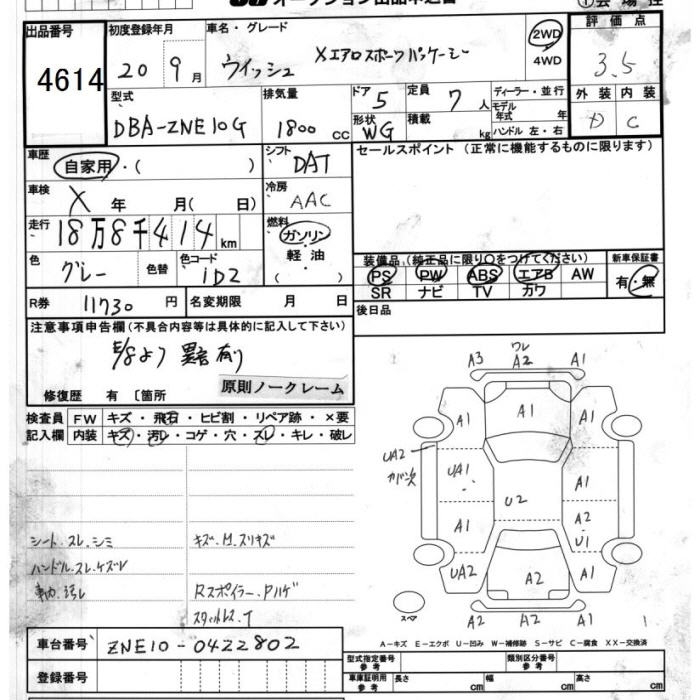 オークション出品申込書
出品番号 4614
初度登録年月 20 9月
車名・グレード ウイッシュ Xエアロスポーツパッケージ
2WD
4WD
評価点 3.5
外装 D 内装 C
型式 DBA-ZNE10G
排気量 1800 cc
ドア 5
形状 WG
定員 7人
積載 kg
ディーラー・並行
モデル年式 年
ハンドル 左・右
車歴 自家用・( )
シフト DAT
セールスポイント (正常に機能するものに限ります)
車検 X 年 月( 日)
冷房 AAC
走行 18万8千414km
燃料 ガソリン・軽油( )
色 グレー 色替 色コード 1D2
装備品(純正品に限り○をつけてください) 新車保証書
PS PW ABS エアB AW 有・無
SR ナビ TV カワ
R券 11730円 名変期限 月 日
後日品
注意事項申告欄(不具合内容等は具体的に記入して下さい)
E/gより異音有り
原則ノークレーム
修復歴 有 〔箇所
検査員 FW キズ・飛石・ヒビ割・リペア跡・×要
記入欄 内装 キズ・汚レ・コゲ・穴・スレ・キレ・破レ
ワレ
A3 A2 A1
A1 A1 A1
UA2 カバ欠
UA1 A1
U2
A1 A2
U1
UA2 A2 A1
A2 A2 A2
スペア
シート.スレ.シミ キズ.M.スリキズ
ハンドル.スレ.ケズレ
車内.汚レ Rスポイラー.Pハゲ
A−キズ E−エクボ U−凹み W−補修跡 S−サビ C−腐食 XX−交換済
車台番号 ZNE10-0422802
登録番号
型式指定番号参考 類別区分番号参考
車庫証明用参考 長さ cm 幅 cm 高さ cm